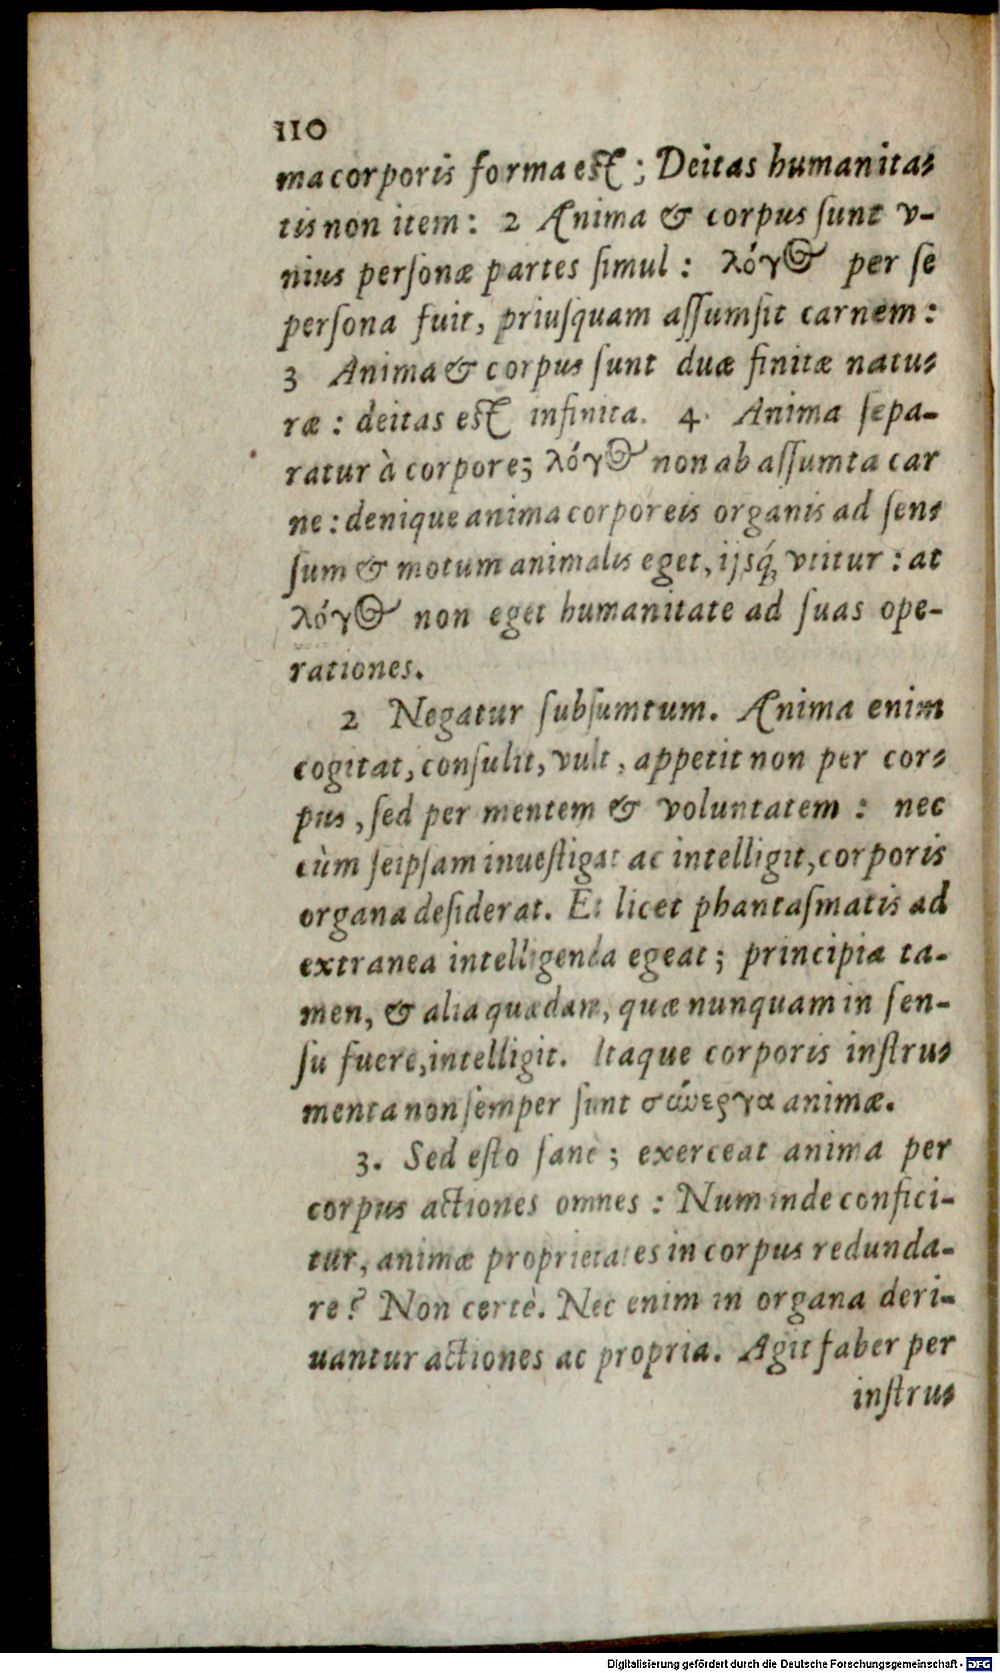 110
ma corporis forma est; Deitas humanita-
tis non item: 2 Anima & corpus sunt v-
nius personæ partes simul: λόγος per se
persona fuit, priusquam assumsit carnem:
3 Anima & corpus sunt duæ finitæ natu-
ræ: deitas est infinita. 4. Anima sepa-
ratur à corpore; λόγος non ab assumta car
ne: denique anima corporeis organis ad sen-
sum & motum animalis eget, ijsq́; vtitur: at
λόγος non eget humanitate ad suas ope-
rationes.
2 Negatur subsumtum. Anima enim
cogitat, consulit, vult, appetit non per cor-
pus, sed per mentem & voluntatem: nec
cùm seipsam inuestigat ac intelligit, corporis
organa desiderat. Et licet phantasmatis ad
extranea intelligenda egeat; principia ta-
men, & alia quædam, quæ nunquam in sen-
su fuere, intelligit. Itaque corporis instru-
menta non semper sunt σύνεργα animæ.
3. Sed esto sanè; exerceat anima per
corpus actiones omnes: Num inde confici-
tur, animæ proprietates in corpus redunda-
re? Non certè. Nec enim in organa deri-
uantur actiones ac propria. Agit faber per
instru-
Digitalisierung gefördert durch die Deutsche Forschungsgemeinschaft - DFG